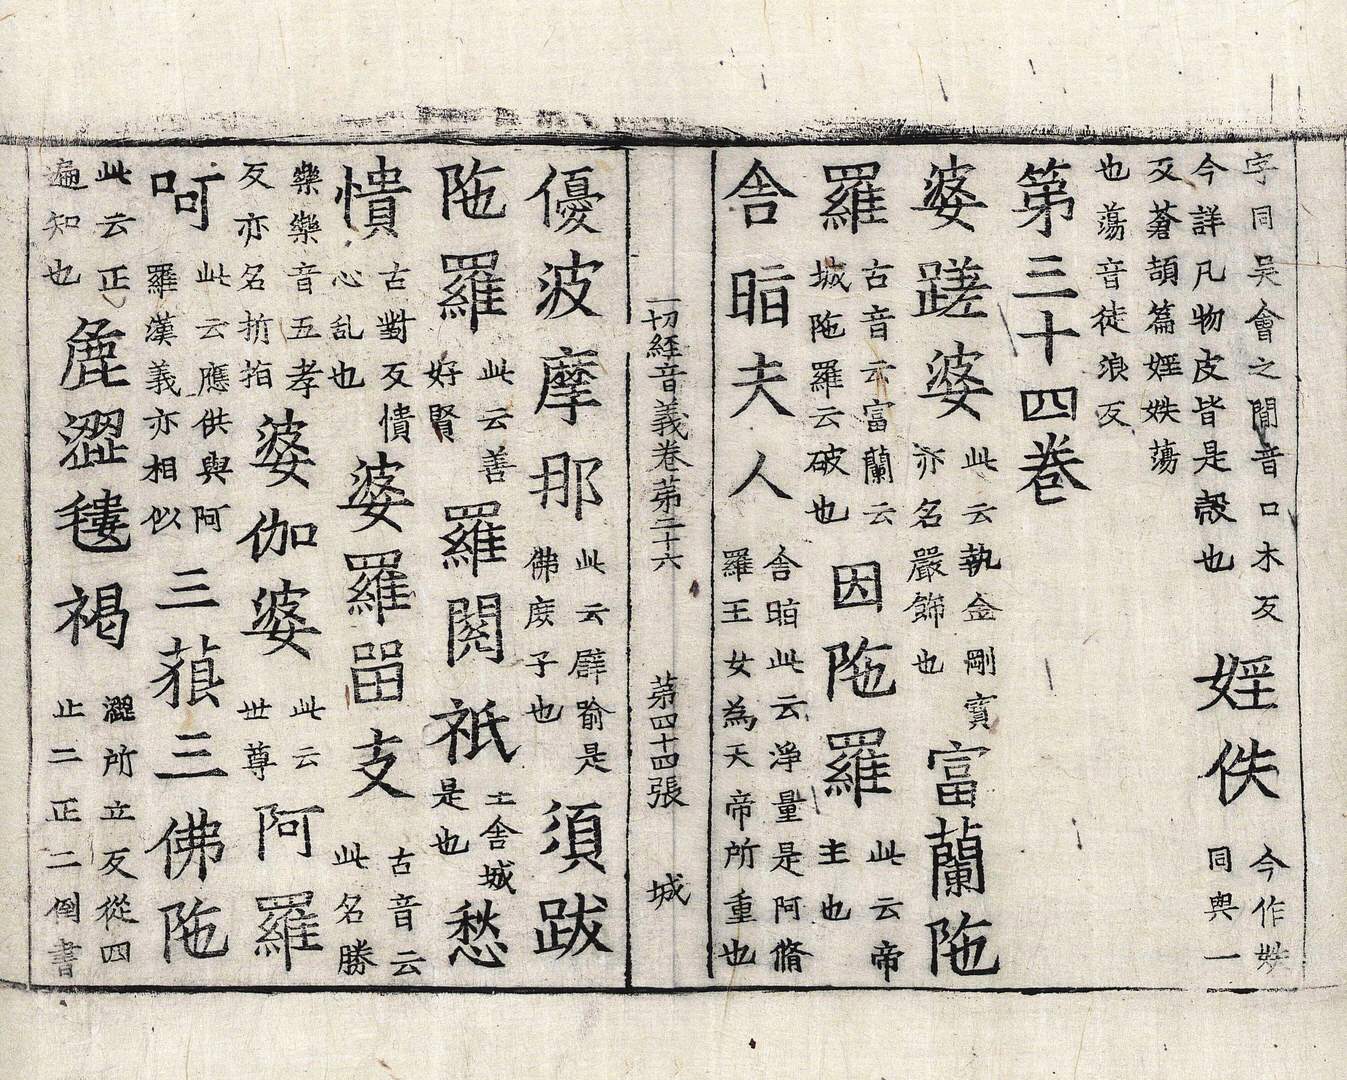 字同吳會之閒音口木反
今詳凡物皮皆是㱿也婬佚今作妷
同與一
反蒼頡篇婬妷蕩
也蕩音徒浪反
第三十四卷
婆蹉婆此云執金剛寶
亦名嚴飾也富蘭陁
羅古音云富蘭云
城陁羅云破也因陁羅此云帝
主也
舍晊夫人舍晊此云淨量是阿脩
羅王女為天帝所重也
一切經音義卷苐二十六 苐四十四張 城
優波摩那此云譬喻是
佛庻子也須跋
陁羅此云善
好賢羅閱祇王舍城
是也愁
憒古對反憒
心乱也婆羅留支古音云
此名勝
樂樂音五孝
反亦名折指婆伽婆此云
世尊阿羅
呵此云應供與阿
羅漢義亦相似三藐三佛陁
此云正
遍知也麁澀氀褐澀所立反從四
止二正二倒書